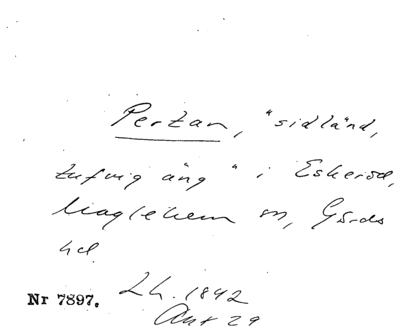 Pertan, "sidländ,
tufvig äng" i Eskeröd,
Maglehem sn, Gärds
hd
Nr 7897. Lh. 1842
Akt 29